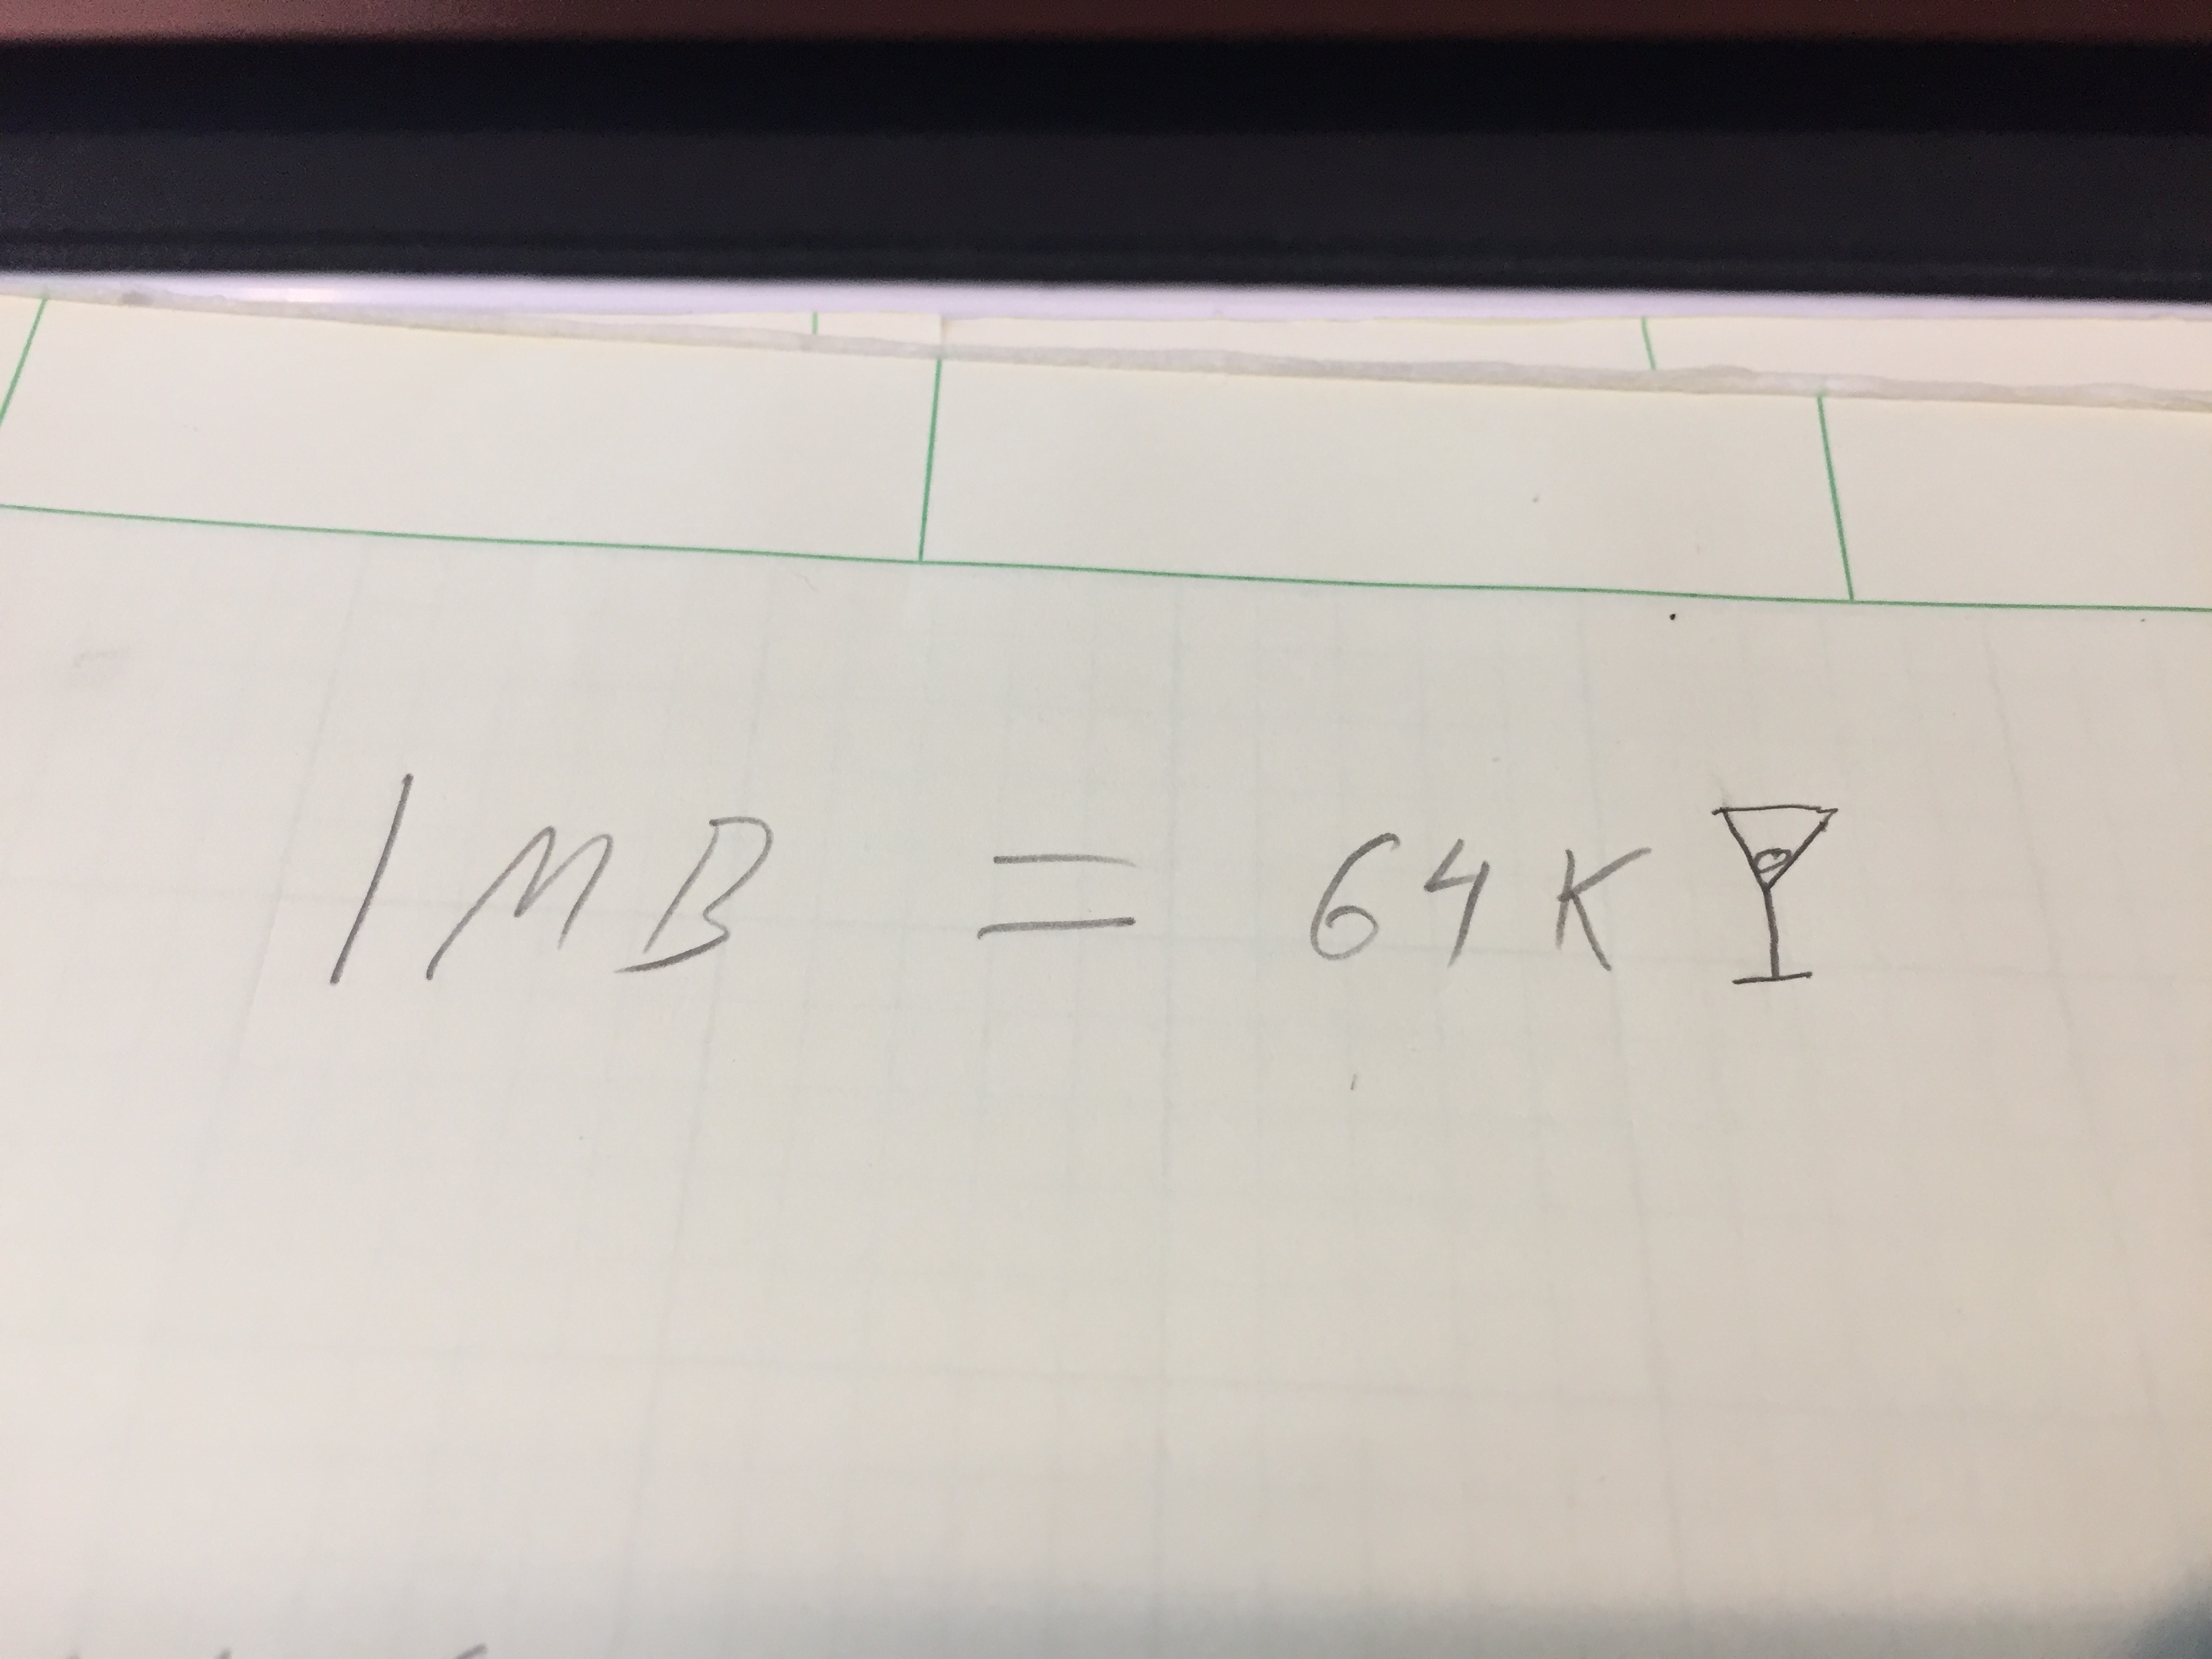 1 MB = 64 K